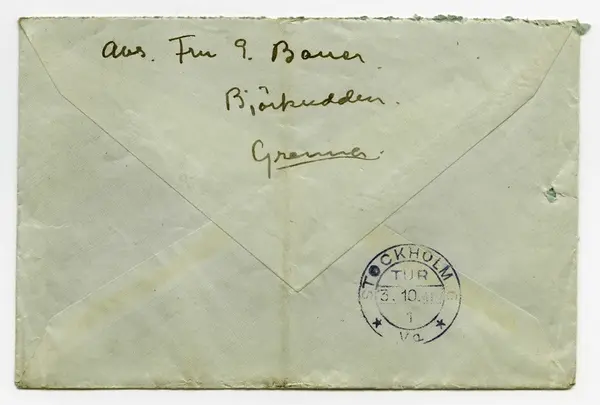 Avs. Fru G. Bauer.
Björkudden.
Grenna.
STOCKHOLM 6
TUR
3. 10.
1
Va